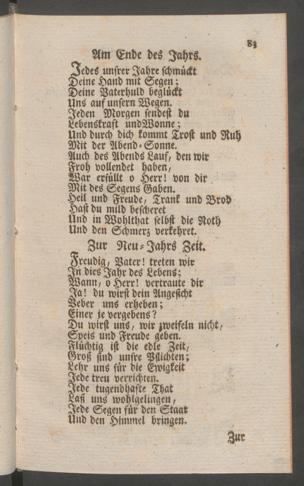 83
Am Ende des Jahrs.
Jedes unsrer Jahre schmückt
Deine Hand mit Segen;
Deine Vaterhuld beglückt
Uns auf unsern Wegen.
Jeden Morgen sendest du
Lebenskraft und Wonne;
Und durch dich kommt Trost und Ruh
Mit der Abend-Sonne.
Auch des Abends Lauf, den wir
Froh vollendet haben,
War erfüllt o Herr! von dir
Mit des Segens Gaben.
Heil und Freude, Trank und Brod
Hast du mild bescheret
Und in Wohlthat selbst die Noth
Und den Schmerz verkehret.
Zur Neu-Jahrs Zeit.
Freudig, Vater! treten wir
In dies Jahr des Lebens;
Wann, o Herr! vertraute dir
Ja! du wirst dein Angesicht
Ueber uns erheben;
Einer je vergebens?
Du wirst uns, wir zweifeln nicht,
Speis und Freude geben.
Flüchtig ist die edle Zeit,
Groß sind unsre Pflichten;
Lehr uns für die Ewigkeit
Jede treu verrichten.
Jede tugendhafte That
Laß uns wohlgelingen,
Jede Segen für den Staat
Und den Himmel bringen.
Zur